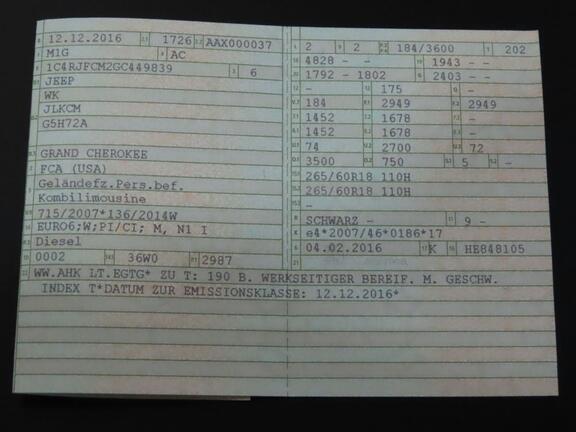 12.12.2016 1726 AAX000037
M1G AC
1C4RJFCM2GC449839 6
JEEP
WK
JLKCM
G5H72A
GRAND CHEROKEE
FCA (USA)
Geländefz.Pers.bef.
Kombilimousine
715/2007*136/2014W
EURO6;W;PI/CI; M, N1 I
Diesel
0002 36W0 2987
2 2 184/3600 202
4828 - - 1943 - -
1792 - 1802 2403 - -
- 175 -
184 2949 2949
1452 1678 -
1452 1678 -
74 2700 72
3500 750 5 -
265/60R18 110H
265/60R18 110H
-
SCHWARZ - 9 -
e4*2007/46*0186*17
04.02.2016 K HE848105
WW.AHK LT.EGTG* ZU T: 190 B. WERKSEITIGER BEREIF. M. GESCHW.
INDEX T*DATUM ZUR EMISSIONSKLASSE: 12.12.2016*